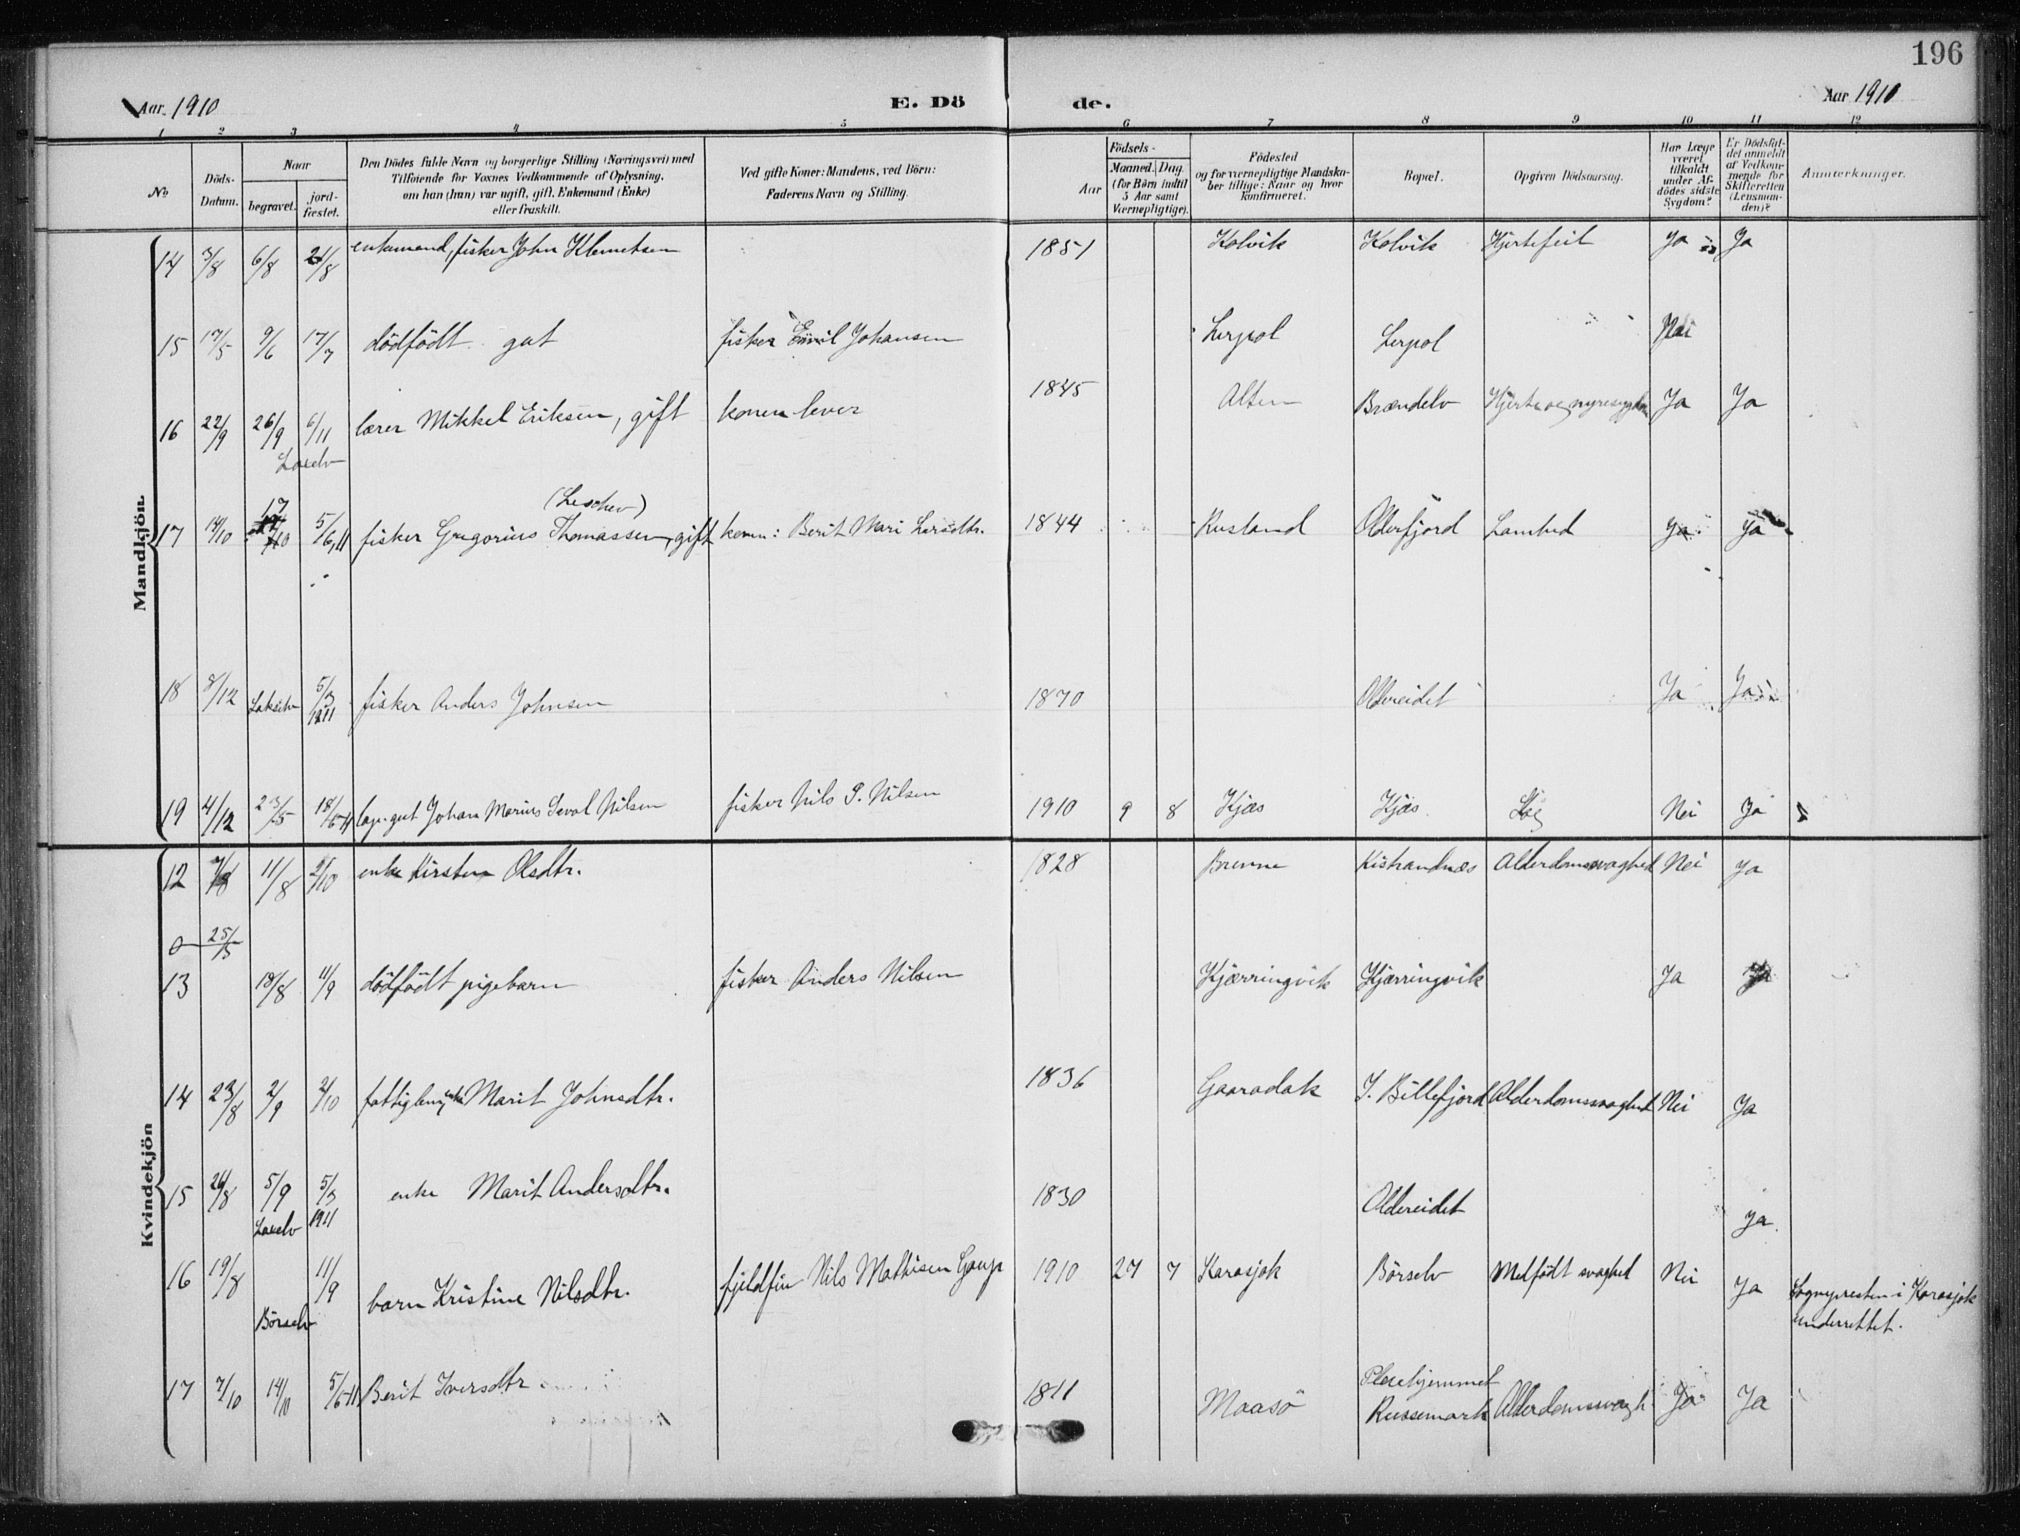 196
Aar 1910 E. Dö de. Aar 1910
1 2 3 4 5 6 7 8 9 10 11 12
No
Döds-Datum.
Naar
begravet.
jord-fæstet.
Den Dödes fulde Navn og borgerlige Stilling (Næringsvei) med
Tilföiende for Voxnes Vedkommende af Oplysning,
om han (hun) var ugift, gift, Enkemand (Enke)
eller fraskilt.
Ved gifte Koner: Mandens, ved Börn:
Faderens Navn og Stilling.
Födsels-
Aar
Maaned. Dag.
(for Börn indtil
5 Aar samt
Værnepligtige).
Födested
og for værnepligtige Mandska-
ber tillige: Naar og hvor
konfirmeret.
Bopæl.
Opgiven Dödsaarsag.
Har Læge
været
tilkaldt
under Af-
dödes sidste
Sygdom?
Er Dödsfal-
det anmeldt
af Vedkom-
mende for
Skifteretten
(Lensman-
den)?
Anmærkninger.
Mandkjön.
14 3/8 6/8 21/8 enkemand, fisker John Klemetsen 1851 Kolvik Kolvik Hjertefeil Ja Ja
15 17/5 9/6 17/7 dödfödt gut fisker Emil Johansen Lerpol Lerpol Nei
16 22/9 26/9 6/11 lærer Mikkel Eriksen, gift konen lever 1845 Alten Brændelv Hjerte og nyresygdom Ja Ja
Laxelv
(Leschev)
17 14/10 17/10 5/6,11 fisker Gregorius Thomassen, gift konen: Berit Mari Larsdtr. 1844 Rusland Olderfjord Lamhed Ja Ja
18 8/12 Lakselv 5/3 1911 fisker Anders Johnsen 1870 Oldereidet Ja Ja
19 4/12 23/5 18/6-11 Johan Marius Seval Nilsen fisker Nils P. Nilsen 1910 9 8 Kjæs Kjæs Nei Ja
Kvindekjön
12 7/8 11/8 2/10 enke Kirsten Olsdtr. 1828 Brenne Kistrandnæs Alderdomssvaghed Nei Ja
0 25/5
13 18/8 11/9 dödfödt pigebarn fisker Anders Nilsen Kjærringvik Kjærringvik Ja Ja
14 23/8 2/9 2/10 fattiglem, enke Marit Johnsdtr. 1836 Gaaradak I. Billefjord Alderdomssvaghed Nei Ja
15 26/8 5/9 5/3 enke Marit Andersdtr. 1830 Oldereidet Ja
Laxelv 1911
16 19/8 11/9 barn Kristine Nilsdtr. fjeldfin Nils Mathisen Gaup 1910 27 7 Karasjok Börselv Medfödt svaghed Nei Ja Sognepresten i Karasjok
Börselv underrettet.
17 7/10 14/10 5/6-11 Berit Iversdtr 1811 Maasö Pleiehjemmet
Russemark Alderdomssvagh. Ja Ja